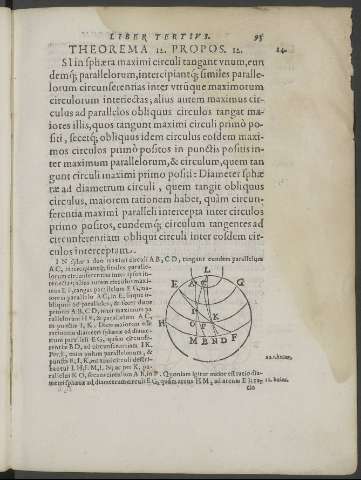 LIBER TERTIVS. 95
THEOREMA 12. PROPOS. 12. 14.
SI in sphæra maximi circuli tangant vnum, eun
demq; parallelorum, intercipiantq; similes paralle-
lorum circunferentias inter vtrūque maximorum
circulorum interiectas; alius autem maximus cir-
culus ad parallelos obliquus circulos tangat ma-
iores illis, quos tangunt maximi circuli primò po-
siti, secetq; obliquus idem circulus eosdem maxi-
mos circulos primò positos in punctis positis in-
ter maximum parallelorum, & circulum, quem tan
gunt circuli maximi primo positi: Diameter sphæ
ræ ad diametrum circuli, quem tangit obliquus
circulus, maiorem rationem habet, quàm circun-
ferentia maximi paralleli intercepta inter circulos
primo positos, eundemq; circulum tangentes ad
circunferentiam obliqui circuli inter eosdem cir-
culos interceptam.
IN sphæra duo maximi circuli AB, CD, tangant eundem parallelum
AC, intercipiantq; similes paralle-
lorum circunferentias inter ipsos in-
teriectas; alius autem circulus maxi-
mus EF, tangat parallelum EG, ma-
iorem parallelo AC, in E, sitque o-
bliquus ad parallelos, & secet duos
priores AB, CD, inter maximum pa-
rallelorum HF, & parallelum AC,
in punctis I, K. Dico maiorem esse
rationem diametri sphæræ ad diame-
trum paralleli EG, quàm circunfe-
rentiæ BD, ad circunferentiam IK.
Per E, &
puncta E, I, K, maximi circuli descri-
bantur
paralleli KO, secans circulum AB, in P. Quoniam igitur maior est ratio dia-
metri sphæræ ad diametrum circuli EG, quàm arcus HM, ad arcum EI;
L
E
A
C
G
I
K
H
O
P
F
M
B
N
D
F
11. huius.
12. huius.